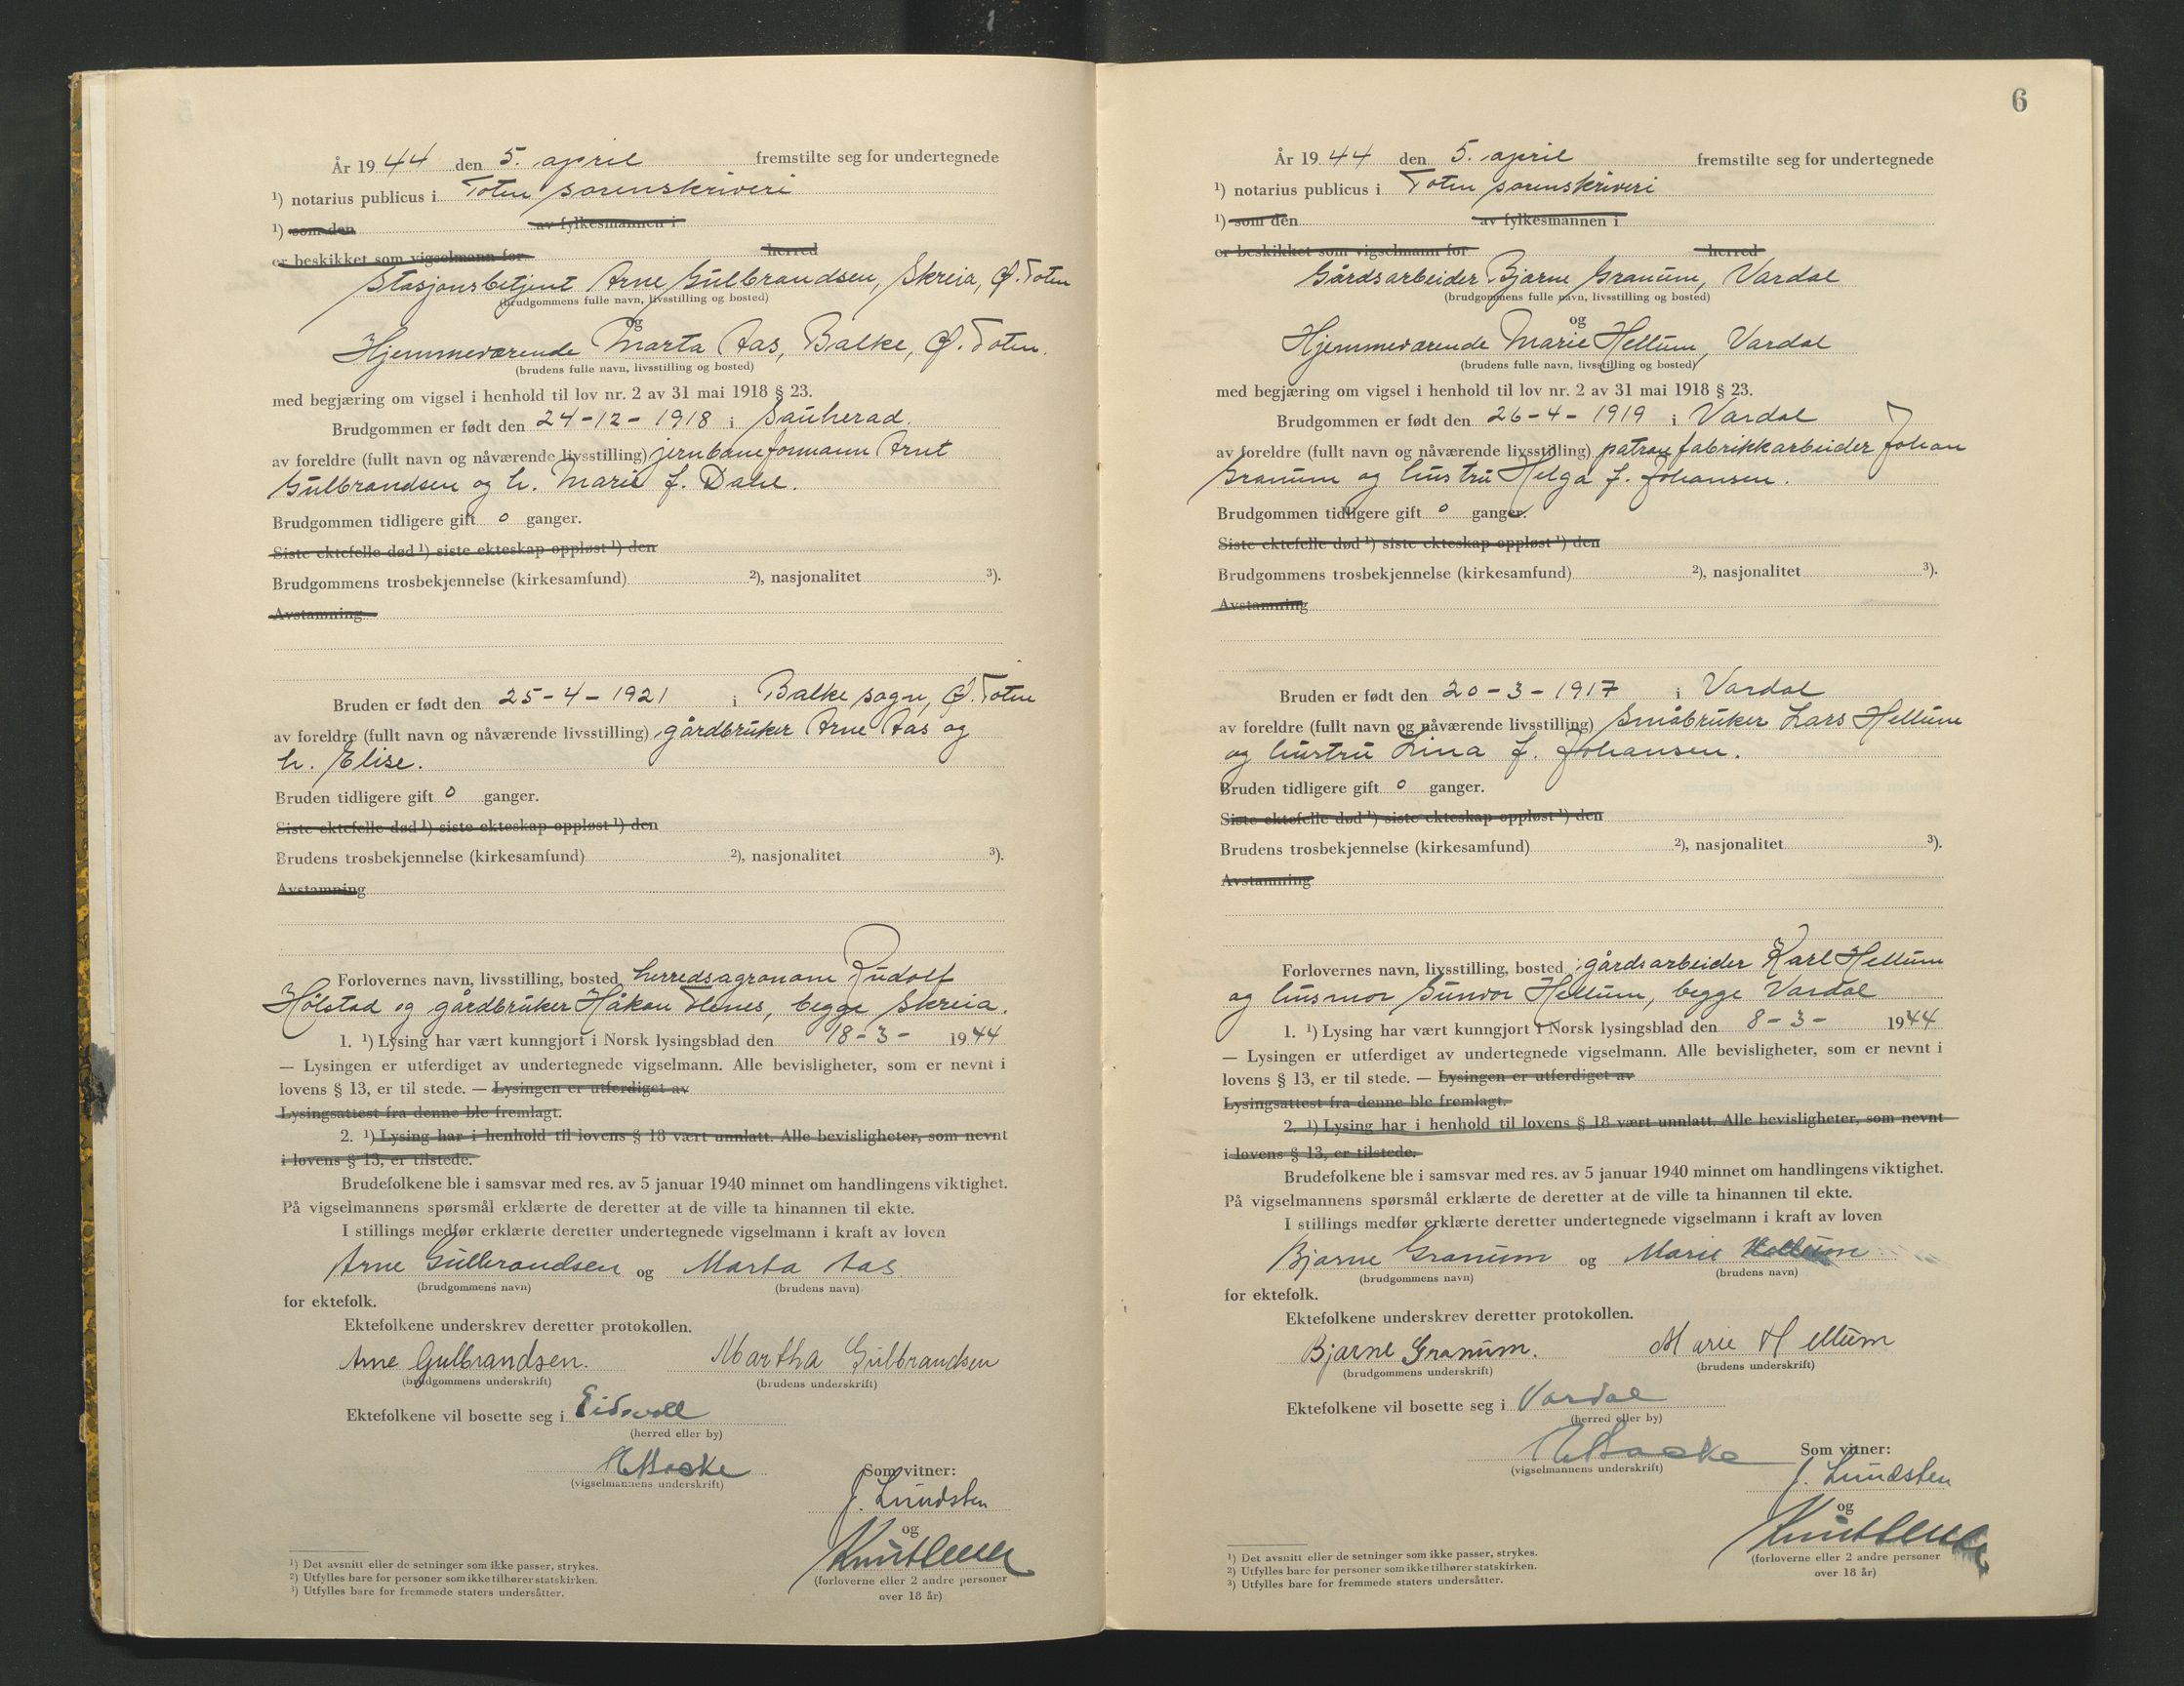 År 1944 den 5. april fremstilte seg for undertegnede
¹) notarius publicus i Toten sorenskriveri
¹) som den av fylkesmannen i
er beskikket som vigselmann for herred
Stasjonsbetjent Arne Gulbrandsen, Skreia, Ø. Toten
(brudgommens fulle navn, livsstilling og bosted)
og
Hjemmeværende Marta Aas, Balke, Ø. Toten.
(brudens fulle navn, livsstilling og bosted)
med begjæring om vigsel i henhold til lov nr. 2 av 31 mai 1918 § 23.
Brudgommen er født den 24-12-1918 i Sauherad.
av foreldre (fullt navn og nåværende livsstilling) jernbaneformann Arnt
Gulbrandsen og h. Marie f. Dahl.
Brudgommen tidligere gift 0 ganger.
Siste ektefelle død ¹) siste ekteskap oppløst ¹) den
Brudgommens trosbekjennelse (kirkesamfund) ²), nasjonalitet ³).
Avstamning
Bruden er født den 25-4-1921 i Balke sogn, Ø. Toten
av foreldre (fullt navn og nåværende livsstilling) gårdbruker Arne Aas og
h. Elise.
Bruden tidligere gift 0 ganger.
Siste ektefelle død ¹) siste ekteskap oppløst ¹) den
Brudens trosbekjennelse (kirkesamfund) ²), nasjonalitet ³).
Avstamning
Forlovernes navn, livsstilling, bosted herredsagronom Rudolf
Hølstad og gårdbruker Håkon begge Skreia.
1. ¹) Lysing har vært kunngjort i Norsk lysingsblad den 18-3- 1944
— Lysingen er utferdiget av undertegnede vigselmann. Alle bevisligheter, som er nevnt i
lovens § 13, er til stede. — Lysingen er utferdiget av
Lysingsattest fra denne ble fremlagt.
2. ¹) Lysing har i henhold til lovens § 18 vært unnlatt. Alle bevisligheter, som nevnt
i lovens § 13, er tilstede.
Brudefolkene ble i samsvar med res. av 5 januar 1940 minnet om handlingens viktighet.
På vigselmannens spørsmål erklærte de deretter at de ville ta hinannen til ekte.
I stillings medfør erklærte deretter undertegnede vigselmann i kraft av loven
Arne Gulbrandsen og Marta Aas
(brudgommens navn) (brudens navn)
for ektefolk.
Ektefolkene underskrev deretter protokollen.
Arne Gulbrandsen. Martha Gulbrandsen
(brudgommens underskrift) (brudens underskrift)
Ektefolkene vil bosette seg i Eidsvoll
(herred eller by)
Som vitner:
(vigselmannens underskrift)
J. Lundsten
og
Knut
(forloverne eller 2 andre personer
over 18 år)
¹) Det avsnitt eller de setninger som ikke passer, strykes.
²) Utfylles bare for personer som ikke tilhører statskirken.
³) Utfylles bare for fremmede staters undersåtter.
6
År 1944 den 5. april fremstilte seg for undertegnede
¹) notarius publicus i Toten sorenskriveri
¹) som den av fylkesmannen i
er beskikket som vigselmann for herred
Gårdsarbeider Bjarne Granum, Vardal
(brudgommens fulle navn, livsstilling og bosted)
og
Hjemmeværende Marie Hellum, Vardal
(brudens fulle navn, livsstilling og bosted)
med begjæring om vigsel i henhold til lov nr. 2 av 31 mai 1918 § 23.
Brudgommen er født den 26-4-1919 i Vardal
av foreldre (fullt navn og nåværende livsstilling) patronfabrikkarbeider Johan
Granum og hustru Helga f. Johansen.
Brudgommen tidligere gift 0 ganger.
Siste ektefelle død ¹) siste ekteskap oppløst ¹) den
Brudgommens trosbekjennelse (kirkesamfund) ²), nasjonalitet ³).
Avstamning
Bruden er født den 20-3-1917 i Vardal
av foreldre (fullt navn og nåværende livsstilling) Småbruker Lars Hellum
og hustru Lina f. Johansen.
Bruden tidligere gift 0 ganger.
Siste ektefelle død ¹) siste ekteskap oppløst ¹) den
Brudens trosbekjennelse (kirkesamfund) ²), nasjonalitet ³).
Avstamning
Forlovernes navn, livsstilling, bosted gårdsarbeider Karl Hellum
og husmor Gunvor Hellum, begge Vardal
1. ¹) Lysing har vært kunngjort i Norsk lysingsblad den 8-3- 1944
— Lysingen er utferdiget av undertegnede vigselmann. Alle bevisligheter, som er nevnt i
lovens § 13, er til stede. — Lysingen er utferdiget av
Lysingsattest fra denne ble fremlagt.
2. ¹) Lysing har i henhold til lovens § 18 vært unnlatt. Alle bevisligheter, som nevnt
i lovens § 13, er tilstede.
Brudefolkene ble i samsvar med res. av 5 januar 1940 minnet om handlingens viktighet.
På vigselmannens spørsmål erklærte de deretter at de ville ta hinannen til ekte.
I stillings medfør erklærte deretter undertegnede vigselmann i kraft av loven
Bjarne Granum og Marie Hellum
(brudgommens navn) (brudens navn)
for ektefolk.
Ektefolkene underskrev deretter protokollen.
Bjarne Granum. Marie Hellum
(brudgommens underskrift) (brudens underskrift)
Ektefolkene vil bosette seg i Vardal
(herred eller by)
Som vitner:
(vigselmannens underskrift)
J. Lundsten
og
Knut
(forloverne eller 2 andre personer
over 18 år)
¹) Det avsnitt eller de setninger som ikke passer, strykes.
²) Utfylles bare for personer som ikke tilhører statskirken.
³) Utfylles bare for fremmede staters undersåtter.